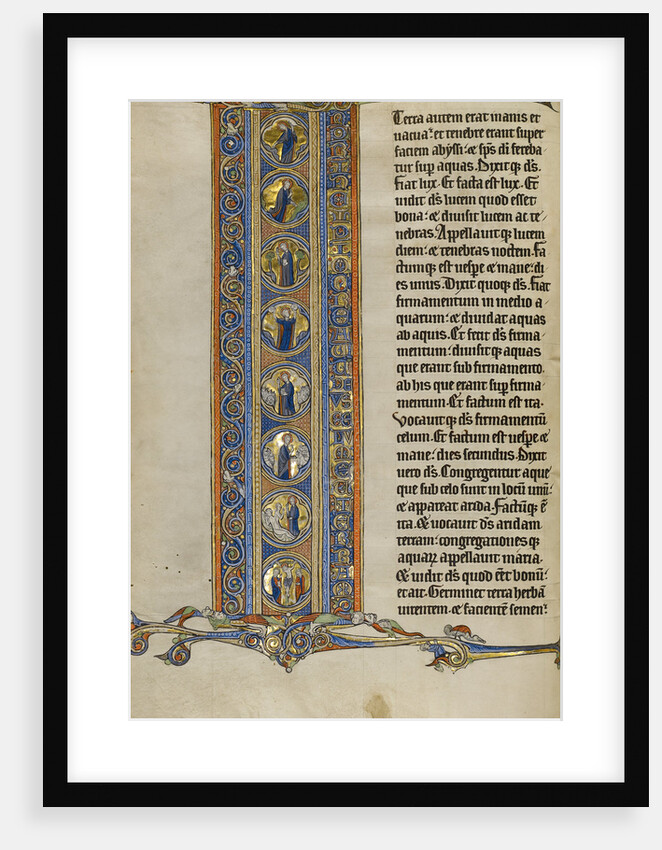 NPRINCIPIOCREAUITDEUSCELUMETTERRAM
Terra autem erat inanis et
uacua: et tenebre erant super
faciem abyssi: et sps di fereba-
tur sup aquas. Dixitq; ds.
Fiat lux. Et facta est lux. Et
uidit ds lucem quod esset
bona: et diuisit lucem ac te-
nebras. Appellauitq; lucem
diem: et tenebras noctem. Fa-
ctumq; est uespe et mane: di-
es unus. Dixit quoq; ds. Fiat
firmamentum in medio a-
quarum: et diuidat aquas
ab aquis. Et fecit ds firma-
mentum: diuisitq; aquas
que erant sub firmamento.
ab his que erant sup firma-
mentum. Et factum est ita.
Vocauitq; ds firmamentū
celum. Et factum est uespe et
mane: dies secundus. Dixit
uero ds. Congregentur aque
que sub celo sunt in locū unū:
et appareat arida. Factūq; ē
ita. Et uocauit ds aridam
terram: congregationes q;
aquaꝝ appellauit maria.
Et uidit ds quod eēt bonū:
et ait. Germinet terra herbā
uirentem. et facientē semen: